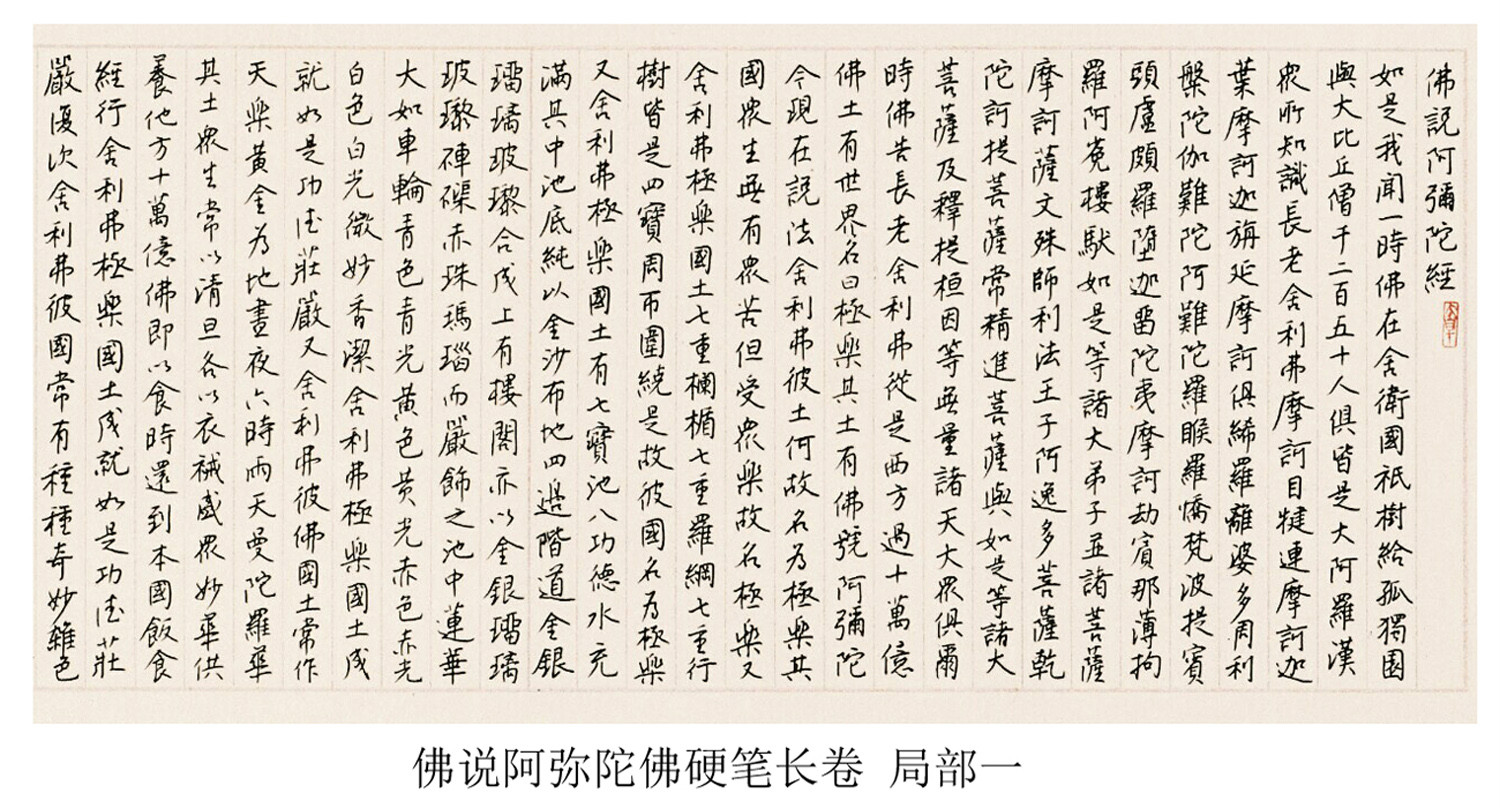 佛説阿彌陀經
如是我聞一時佛在舍衛國祇樹給孤獨園
與大比丘僧千二百五十人俱皆是大阿羅漢
衆所知識長老舍利弗摩訶目犍連摩訶迦
葉摩訶迦旃延摩訶俱絺羅離婆多周利
槃陀伽難陀阿難陀羅睺羅憍梵波提賓
頭盧頗羅墮迦留陀夷摩訶劫賓那薄拘
羅阿㝹樓馱如是等諸大弟子並諸菩薩
摩訶薩文殊師利法王子阿逸多菩薩乾
陀訶提菩薩常精進菩薩與如是等諸大
菩薩及釋提桓因等無量諸天大衆俱爾
時佛告長老舍利弗從是西方過十萬億
佛土有世界名曰極樂其土有佛號阿彌陀
今現在説法舍利弗彼土何故名為極樂其
國衆生無有衆苦但受衆樂故名極樂又
舍利弗極樂國土七重欄楯七重羅網七重行
樹皆是四寶周帀圍繞是故彼國名為極樂
又舍利弗極樂國土有七寶池八功德水充
滿其中池底純以金沙布地四邊階道金銀
瑠璃玻瓈合成上有樓閣亦以金銀瑠璃
玻瓈硨磲赤珠瑪瑙而嚴飾之池中蓮華
大如車輪青色青光黄色黄光赤色赤光
白色白光微妙香潔舍利弗極樂國土成
就如是功德莊嚴又舍利弗彼佛國土常作
天樂黄金為地晝夜六時雨天曼陀羅華
其土衆生常以清旦各以衣祴盛衆妙華供
養他方十萬億佛即以食時還到本國飯食
經行舍利弗極樂國土成就如是功德莊
嚴復次舍利弗彼國常有種種奇妙雜色
佛说阿弥陀佛硬笔长卷 局部一